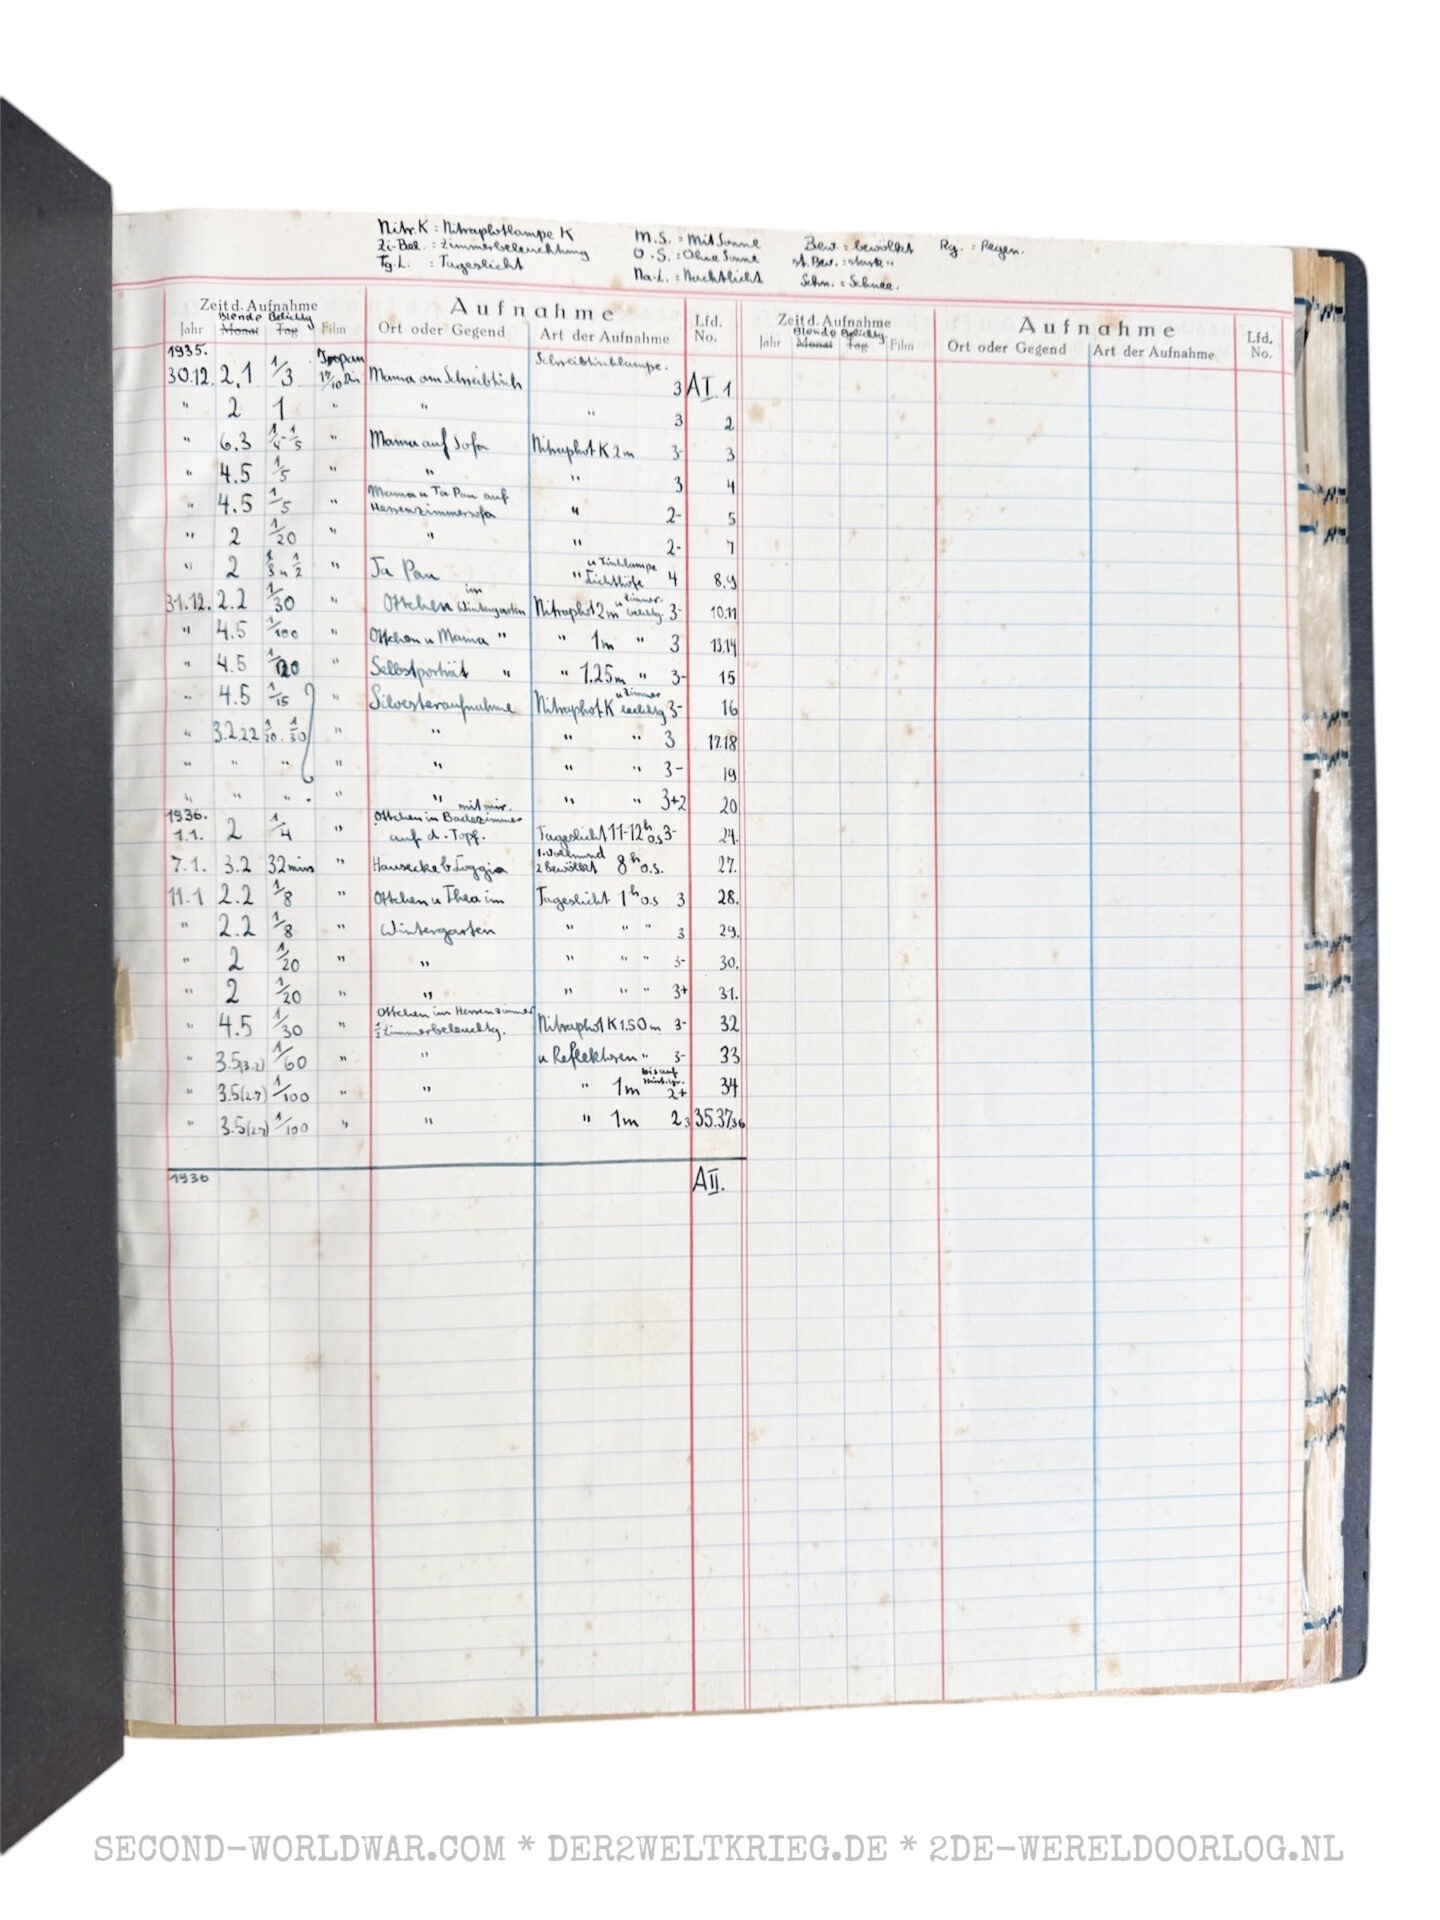 Nitr.K = Nitraphotlampe K M.S. = Mit Sonne Bew. = bewölkt Rg. = Regen.
Zi-Bel. = Zimmerbeleuchtung O.S. = Ohne Sonne st.Bew. = stark "
Tg.L. = Tageslicht Na.L. = Nachtlicht Schn. = Schnee.
Zeit d. Aufnahme Aufnahme Lfd. No. Zeit d. Aufnahme Aufnahme Lfd. No.
Blende Belichtg Blende Belichtg
Jahr Monat Tag Film Ort oder Gegend Art der Aufnahme Jahr Monat Tag Film Ort oder Gegend Art der Aufnahme
1935. Schreibtischlampe.
30.12. 2,1 1/3 17/10 Din Mama am Schreibtisch 3 AI. 1
" 2 1 " " " 3 2
" 6.3 1/4-1/5 " Mama auf Sofa Nitraphot K 2m 3- 3
" 4.5 1/5 " " " 3 4
" 4.5 1/5 " Mama u Ta Pau auf
Herrenzimmersofa " 2- 5
" 2 1/20 " " " 2- 7
" 2 " Ta Pau " u Tischlampe
4 8.9
31.12. 2.2 1/30 " Ottchen im Wintergarten Nitraphot 2m u Zimmer-
belichtg. 3- 10.11
" 4.5 1/100 " Ottchen u Mama " " 1m " 3 13.14
" 4.5 " Selbstporträt " " 1.25m " 3- 15
" 4.5 1/15 " Silvesteraufnahme Nitraphot K u Zimmer
3- 16
" 3.2 2.2 1/20. 1/30 " " " " 3 17.18
" " " " " " " 3- 19
" " " " " mit mir. " " 3+2 20
1936.
1.1. 2 1/4 " Ottchen in Badezimmer
auf d. Topf. Tageslicht 11-12h o.s 3- 24.
7.1. 3.2 32 mins " Hausecke b Loggia 1. Vollmond
2 bewölkt 8h o.s. 27.
11.1 2.2 1/8 " Ottchen u Thea im Tageslicht 1h o.s 3 28.
" 2.2 1/8 " Wintergarten " " " 3 29.
" 2 1/20 " " " " " 3- 30.
" 2 1/20 " " " " " 3+ 31.
" 4.5 1/30 " Ottchen im Herrenzimmer
Zimmerbeleuchtg. Nitraphot K 1.50m 3- 32
" 3.5(3.2) 1/60 " " u Reflektoren " 3- 33
" 3.5(2.7) 1/100 " " " 1m bis auf
2+ 34
" 3.5(2.7) 1/100 " " " 1m 2 3 35.37.36
1936 AII.
SECOND-WORLDWAR.COM * DER2WELTKRIEG.DE * 2DE-WERELDOORLOG.NL